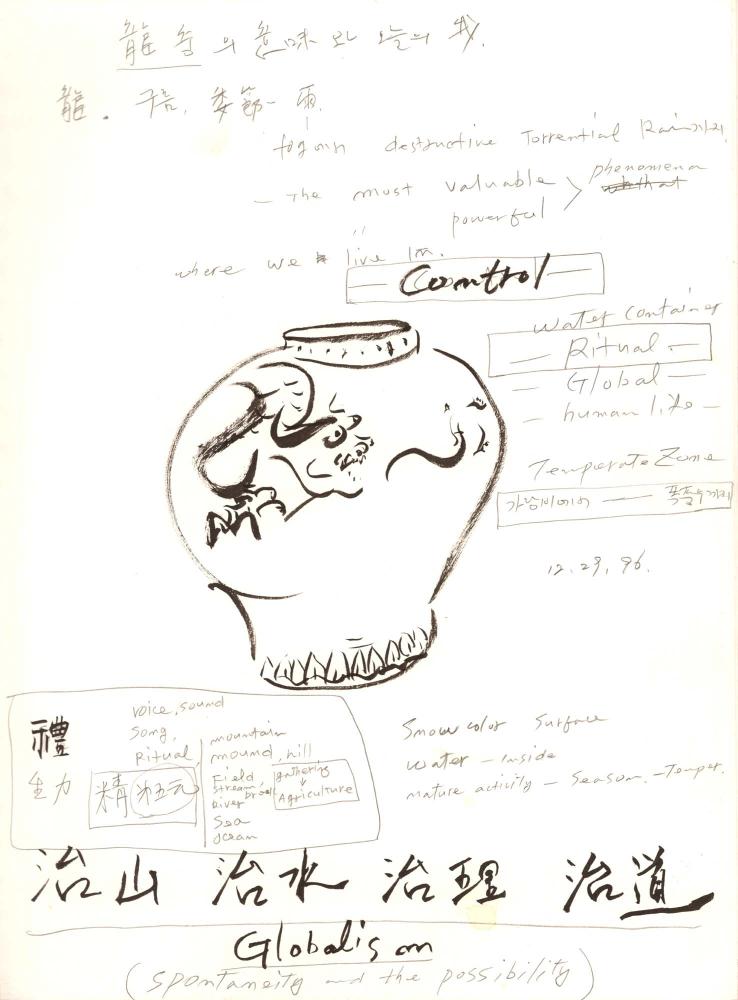 龍 의 意味와 오늘의 我.
龍. 구름, 季節 - 雨
destructive Torrential Rain까지.
- The most valuable > phenomena
powerful
where we live in.
— Control —
water container
— Ritual —
— Global —
— human life —
Temperate Zone
가랑비에서 — 폭풍우까지
12. 29, 96.
禮
生力
voice, sound
song,
Ritual,
精
mountain
mound, hill
Field
stream, brook
River
Sea
ocean
gathering
Agriculture
Snow color Surface
water - inside
nature activity - Season. - Temper.
治山 治水 治理 治道
Globalism
(spontaneity and the possibility)